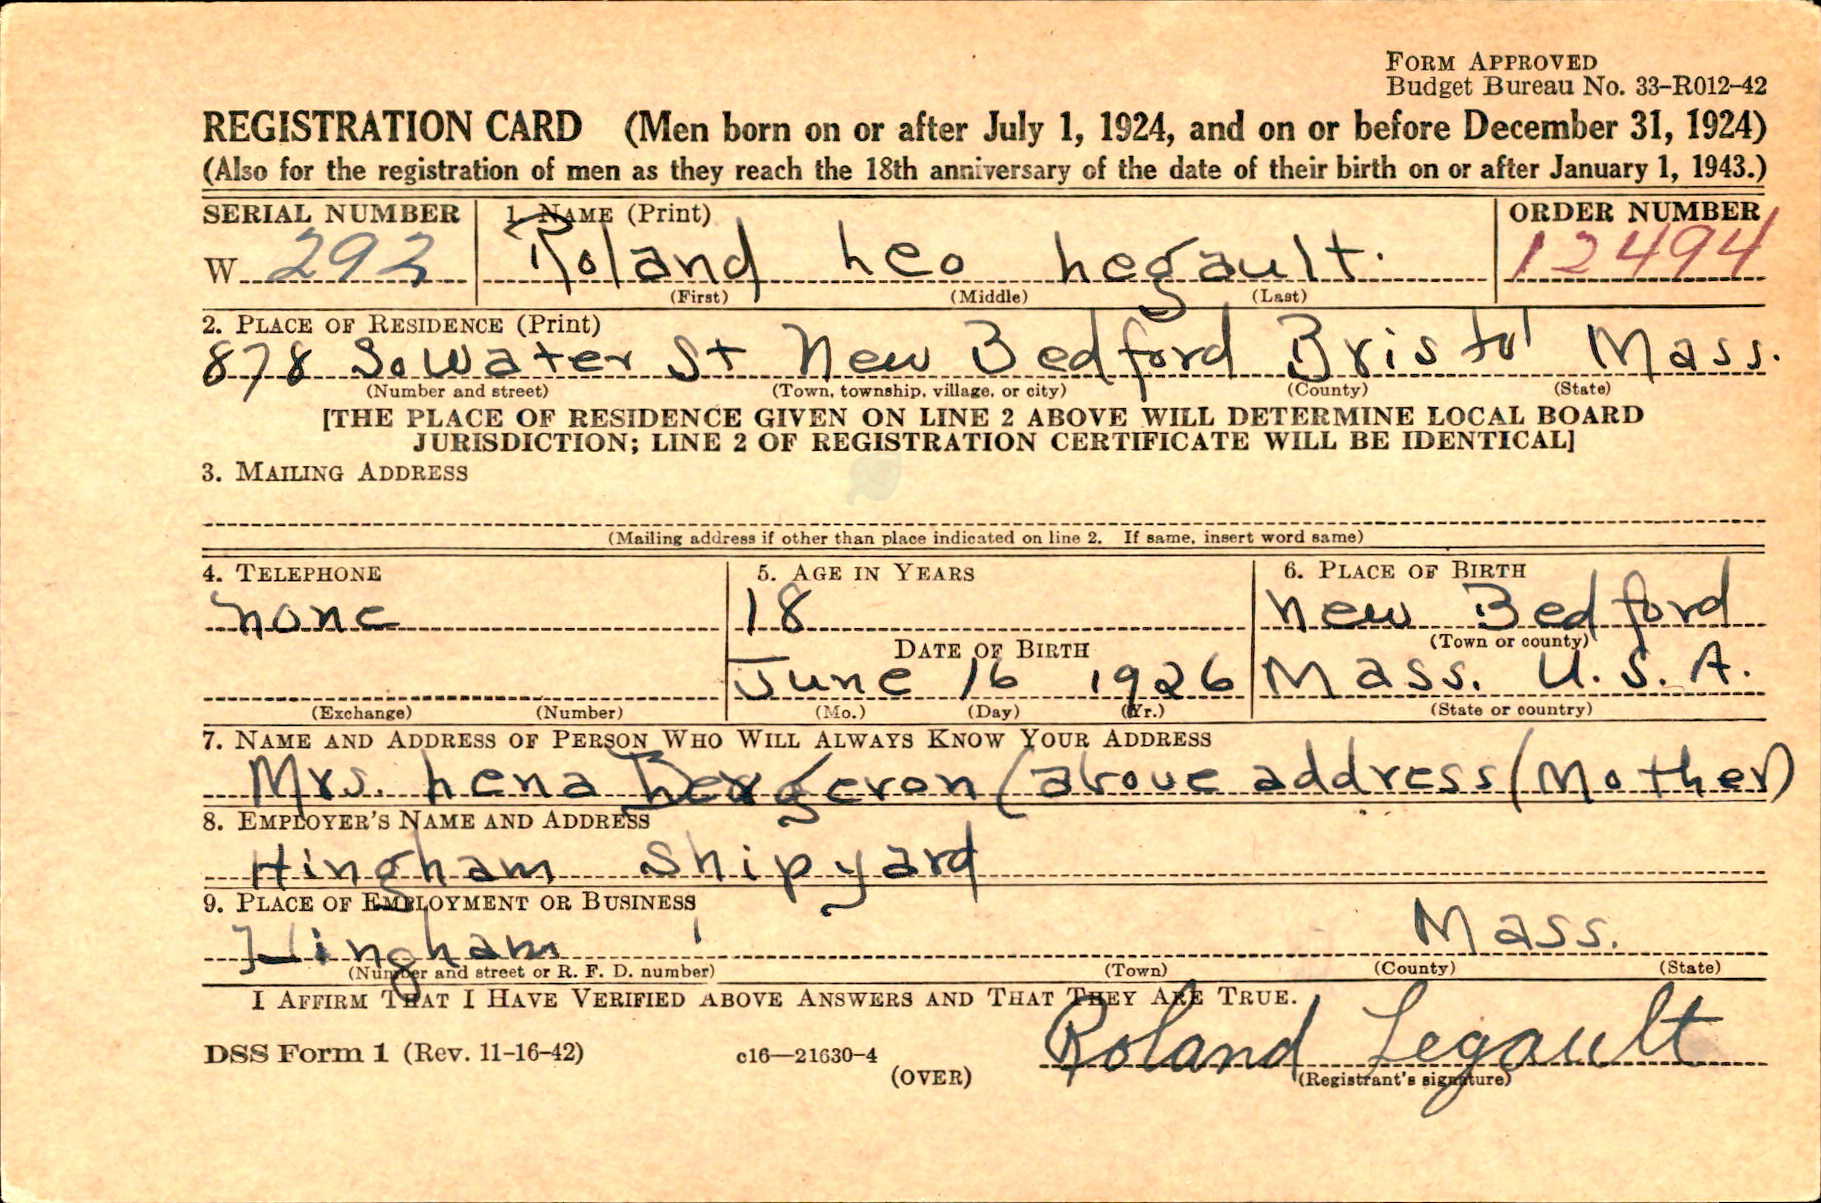 FORM APPROVED
Budget Bureau No. 33-R012-42
REGISTRATION CARD (Men born on or after July 1, 1924, and on or before December 31, 1924)
(Also for the registration of men as they reach the 18th anniversary of the date of their birth on or after January 1, 1943.)
SERIAL NUMBER 1. NAME (Print) ORDER NUMBER
W 293 Roland Leo Legault. 12494
(First) (Middle) (Last)
2. PLACE OF RESIDENCE (Print)
878 So Water St New Bedford Bristol Mass.
(Number and street) (Town, township, village, or city) (County) (State)
[THE PLACE OF RESIDENCE GIVEN ON LINE 2 ABOVE WILL DETERMINE LOCAL BOARD
JURISDICTION; LINE 2 OF REGISTRATION CERTIFICATE WILL BE IDENTICAL]
3. MAILING ADDRESS
(Mailing address if other than place indicated on line 2. If same, insert word same)
4. TELEPHONE 5. AGE IN YEARS 6. PLACE OF BIRTH
none 18 New Bedford
DATE OF BIRTH (Town or county)
June 16 1926 Mass. U.S.A.
(Exchange) (Number) (Mo.) (Day) (Yr.) (State or country)
7. NAME AND ADDRESS OF PERSON WHO WILL ALWAYS KNOW YOUR ADDRESS
Mrs. Lena Bergeron (above address (Mother)
8. EMPLOYER'S NAME AND ADDRESS
Hingham Shipyard
9. PLACE OF EMPLOYMENT OR BUSINESS
Hingham, Mass.
(Number and street or R. F. D. number) (Town) (County) (State)
I AFFIRM THAT I HAVE VERIFIED ABOVE ANSWERS AND THAT THEY ARE TRUE.
DSS Form 1 (Rev. 11-16-42) c16—21630-4 Roland Legault
(OVER) (Registrant's signature)